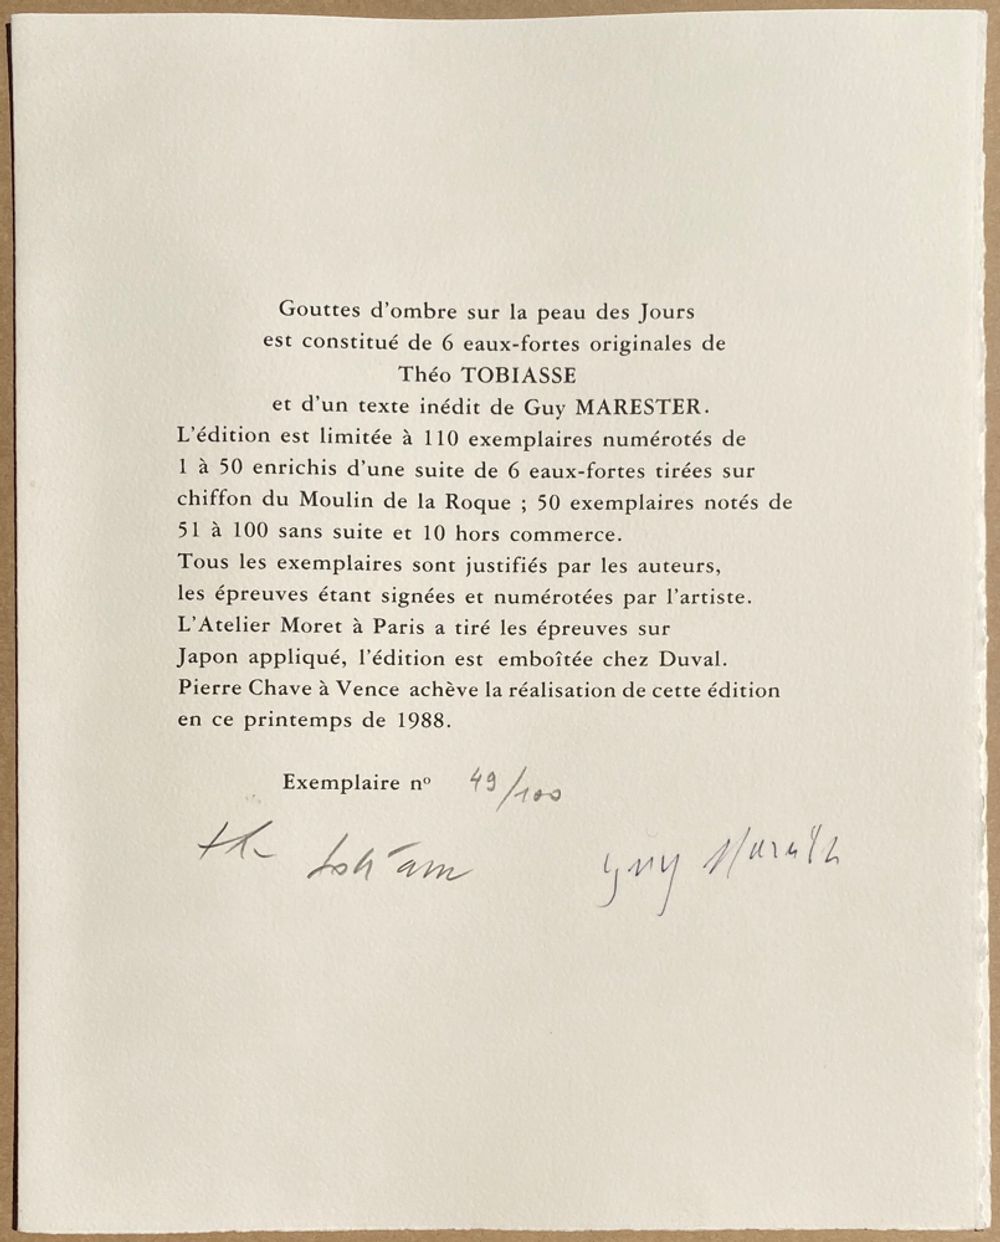 Gouttes d'ombre sur la peau des Jours
est constitué de 6 eaux-fortes originales de
Théo TOBIASSE
et d'un texte inédit de Guy MARESTER.
L'édition est limitée à 110 exemplaires numérotés de
1 à 50 enrichis d'une suite de 6 eaux-fortes tirées sur
chiffon du Moulin de la Roque ; 50 exemplaires notés de
51 à 100 sans suite et 10 hors commerce.
Tous les exemplaires sont justifiés par les auteurs,
les épreuves étant signées et numérotées par l'artiste.
L'Atelier Moret à Paris a tiré les épreuves sur
Japon appliqué, l'édition est emboîtée chez Duval.
Pierre Chave à Vence achève la réalisation de cette édition
en ce printemps de 1988.
Exemplaire nº 49/100
Guy